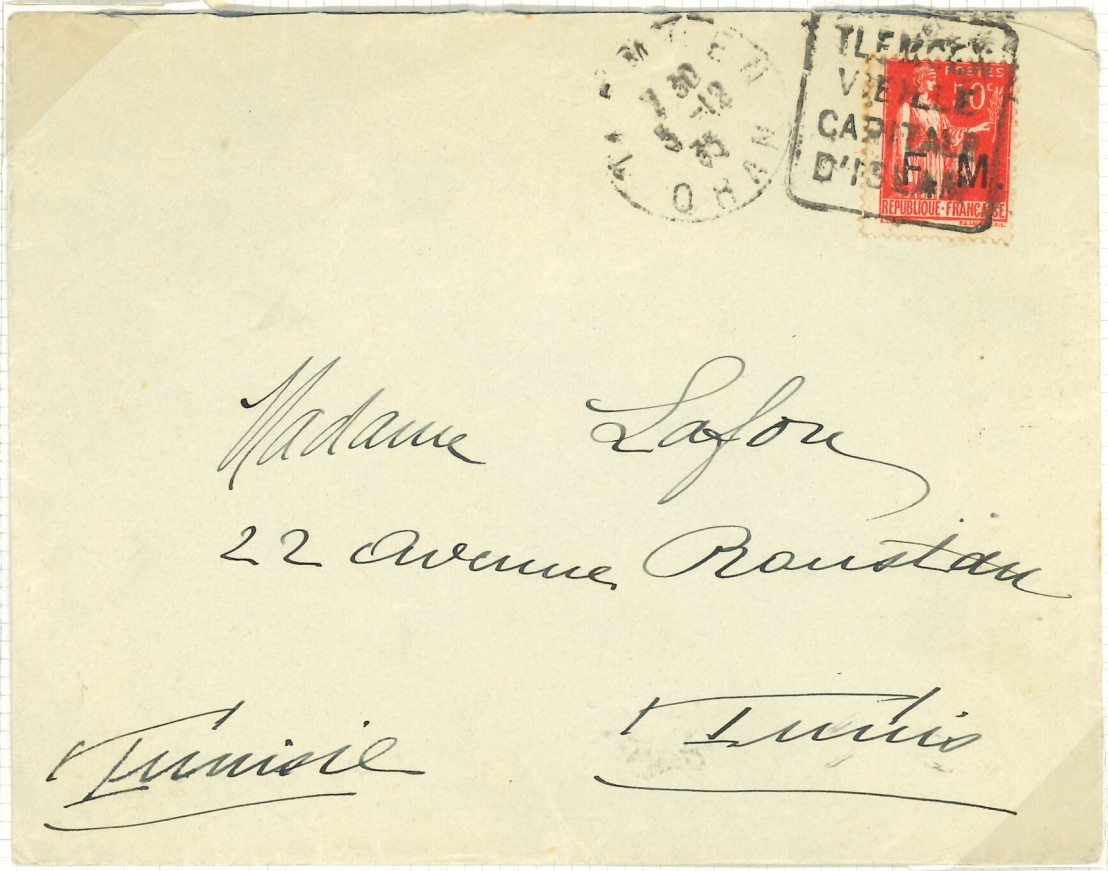 TLEMCEN
7 30
5 -12
35
ORAN
TLEMCEN
VIEILLE
CAPITALE
D'ISLAM
POSTES
50c
F. M.
REPUBLIQUE·FRANÇAISE
Madame Lafon
22 Avenue Roustan
Tunis
Tunisie